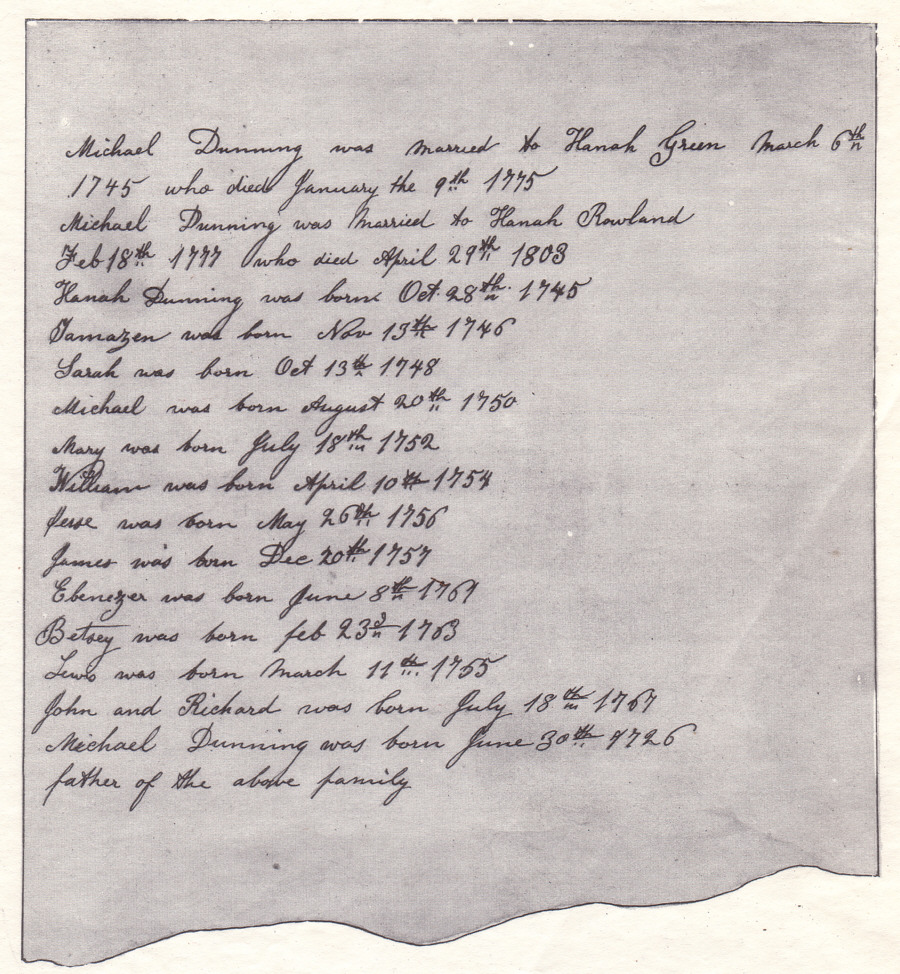 Michael Dunning was married to Hanah Green March 6th
1745 who died January the 9th 1775
Michael Dunning was Married to Hanah Rowland
Feb 18th 1777 who died April 29th 1803
Hanah Dunning was born Oct. 28th 1745
Tamazen was born Nov 13th 1746
Sarah was born Oct 13th 1748
Michael was born August 20th 1750
Mary was born July 18th 1752
William was born April 10th 1754
Jesse was born May 26th 1756
James was born Dec 20th 1757
Ebenezer was born June 8th 1761
Betsey was born feb 23d 1763
Lewis was born March 11th 1765
John and Richard was born July 18th 1767
Michael Dunning was born June 30th 1726
father of the above family